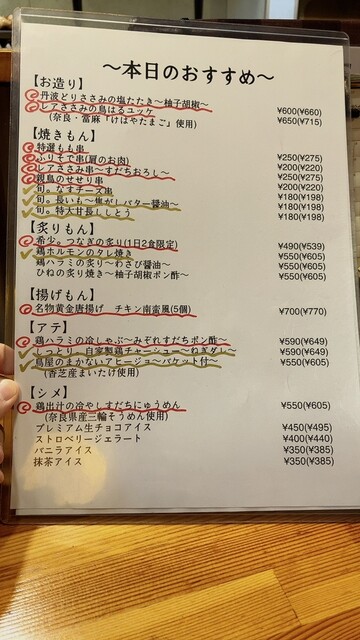 ～本日のおすすめ～
【お造り】
丹波どりささみの塩たたき～柚子胡椒～ ¥600(¥660)
レアささみの鳥はるユッケ ¥650(¥715)
(奈良・當麻「けはやたまご」使用)
【焼きもん】
特選もも串 ¥250(¥275)
ふりそで串(肩のお肉) ¥200(¥220)
レアささみ串～すだちおろし～ ¥250(¥275)
親鳥のせせり串 ¥200(¥220)
旬。なすチーズ串 ¥180(¥198)
旬。長いも～焦がしバター醤油～ ¥180(¥198)
旬。特大甘長ししとう ¥180(¥198)
【炙りもん】
希少。つなぎの炙り(1日2食限定) ¥490(¥539)
鶏ホルモンのタレ焼き ¥550(¥605)
鶏ハラミの炙り～わさび醤油～ ¥550(¥605)
ひねの炙り焼き～柚子胡椒ポン酢～ ¥550(¥605)
【揚げもん】
名物黄金唐揚げ チキン南蛮風(5個) ¥700(¥770)
【アテ】
鶏ハラミの冷しゃぶ～みぞれすだちポン酢～ ¥590(¥649)
しっとり。自家製鶏チャーシュー～ねぎダレ～ ¥590(¥649)
鳥屋のまかないアヒージョ～バケット付～ ¥550(¥605)
(香芝産まいたけ使用)
【シメ】
鶏出汁の冷やしすだちにゅうめん ¥550(¥605)
(奈良県産三輪そうめん使用)
プレミアム生チョコアイス ¥450(¥495)
ストロベリージェラート ¥400(¥440)
バニラアイス ¥350(¥385)
抹茶アイス ¥350(¥385)